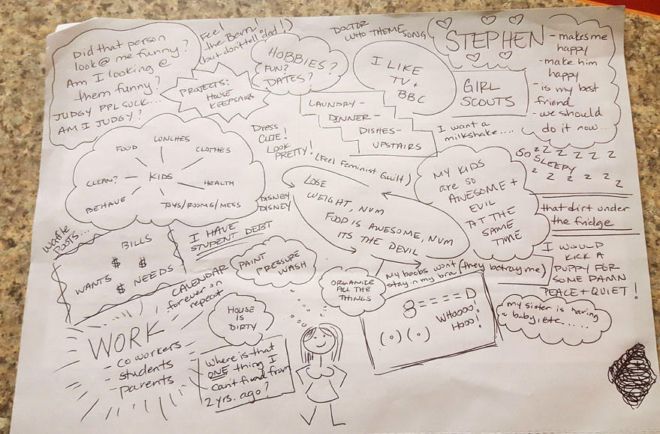 Did that person
look @ me funny?
Am I looking @
them funny?
JUDGY PPL SUCK...
AM I JUDGY?
Feel
the Bern!
but don't tell dad!)
PROJECTS:
HOUSE
KEEPING
HOBBIES?
FUN?
DATES?
DOCTOR
WHO THEME
SONG
I LIKE
TV +
BBC
STEPHEN
- makes me
happy
- make him
happy
- is my best
friend
- we should
do it now...
GIRL
SCOUTS
I want a
milkshake....
LAUNDRY-
DINNER-
DISHES-
UPSTAIRS
FOOD
LUNCHES
CLOTHES
CLEAN?
KIDS
HEALTH
BEHAVE
TOYS/ROOMS/MESS
DRESS
CUTE!
LOOK
PRETTY!
(Feel Feminist Guilt)
DISNEY
DISNEY
LOSE
WEIGHT, NUM
FOOD IS AWESOME, NUM
ITS THE DEVIL
MY KIDS
are so
AWESOME +
EVIL
AT THE
SAME
TIME
SO
SLEEPY
Z Z Z Z Z Z
Z Z Z Z Z
that dirt under
the fridge
I WOULD
KICK A
PUPPY FOR
SOME DAMN
PEACE + QUIET!
waffle
BILLS
$ $
WANTS $ NEEDS
I HAVE
STUDENT DEBT
CALENDAR
forever on
repeat
PAINT
PRESSURE
WASH
ORGANIZE
ALL THE
THINGS
My boobs wont
stay in my bra
(they betray me)
8====D
(.)(.)
WHOOOO!
HOOO!
my sister is having
a baby, ete.....
HOUSE
IS
DIRTY
WORK
- coworkers
- students
- parents
Where is that
ONE thing I
can't find from
2 yrs. ago?